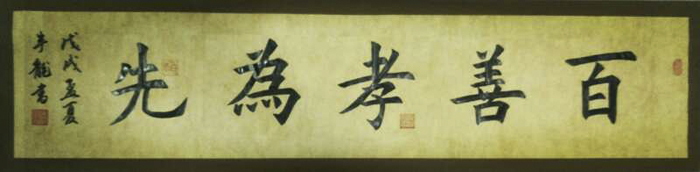 百善孝為先
戊戌孟夏
李龍書